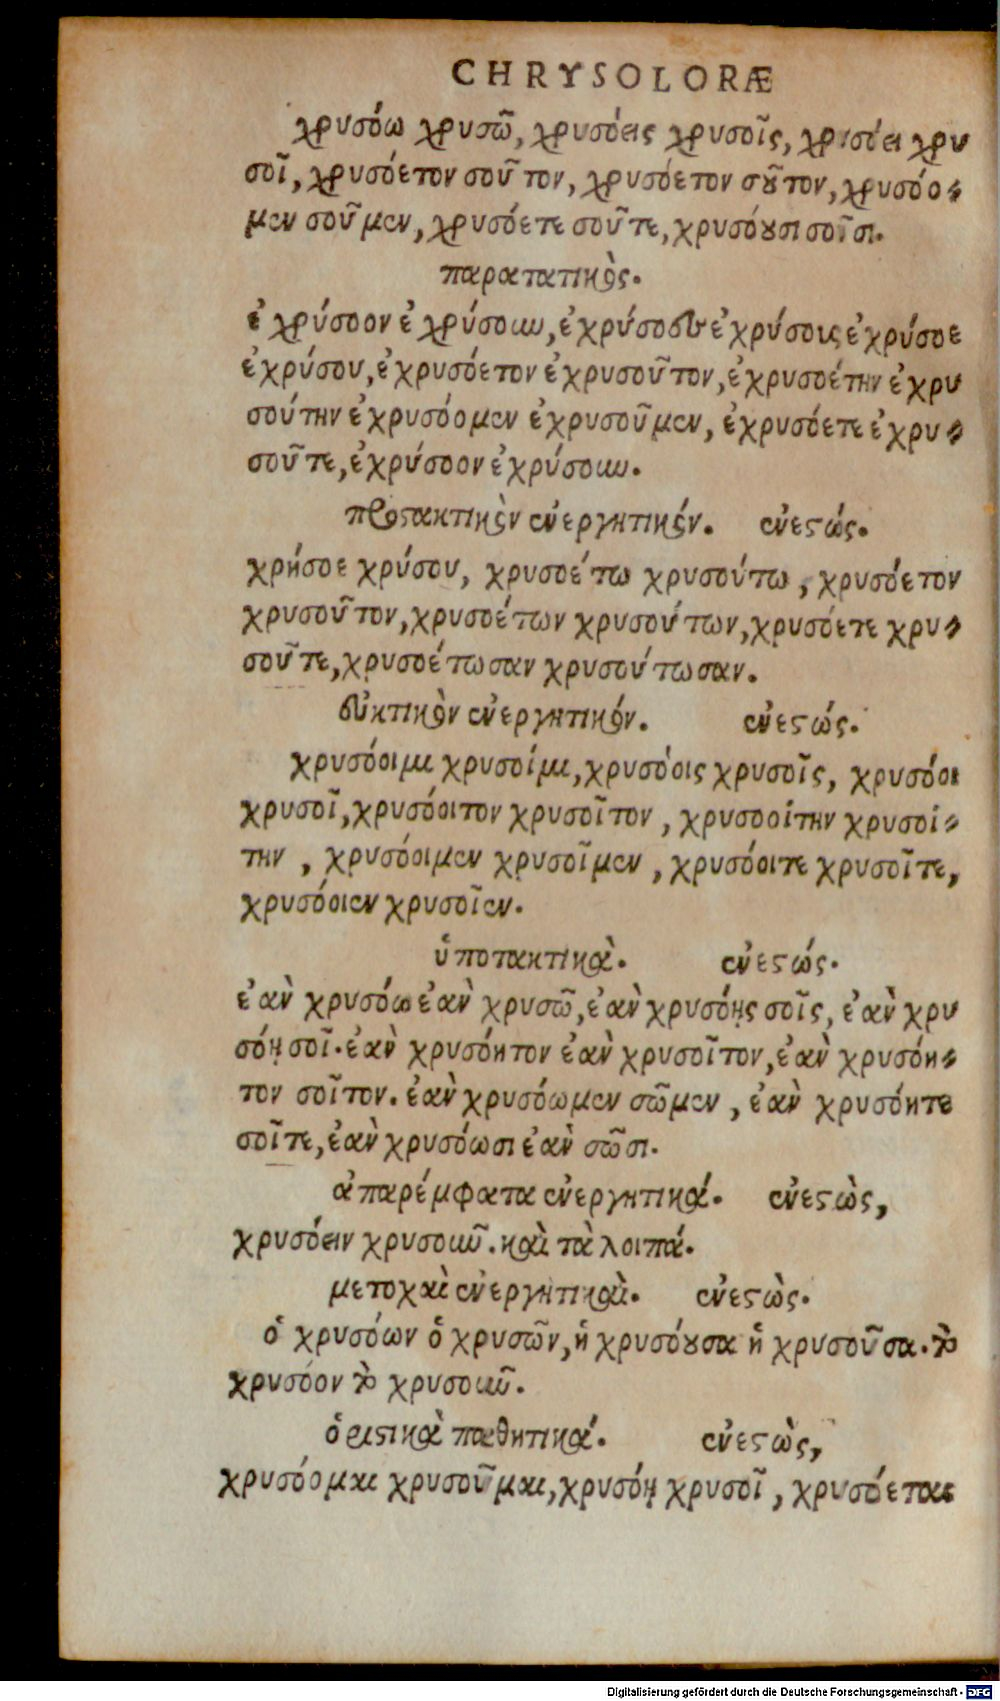 CHRYSOLORÆ
χρυσόω χρυσῶ, χρυσόεις χρυσοῖς, χρυσόει χρυ
σοῖ, χρυσόετον σοῦτον, χρυσόετον σοῦτον, χρυσόο-
μεν σοῦμεν, χρυσόετε σοῦτε, χρυσόουσι σοῖσι.
παρατατικὸς.
ἐχρύσοον ἐχρύσουν, ἐχρύσοες ἐχρύσους ἐχρύσοε
ἐχρύσου, ἐχρυσόετον ἐχρυσοῦτον, ἐχρυσοέτην ἐχρυ
σούτην ἐχρυσόομεν ἐχρυσοῦμεν, ἐχρυσόετε ἐχρυ-
σοῦτε, ἐχρύσοον ἐχρύσουν.
προστακτικὸν ἐνεργητικόν. ἐνεστώς.
χρήσοε χρύσου, χρυσοέτω χρυσούτω, χρυσόετον
χρυσοῦτον, χρυσοέτων χρυσούτων, χρυσόετε χρυ-
σοῦτε, χρυσοέτωσαν χρυσούτωσαν.
εὐκτικὸν ἐνεργητικόν. ἐνεστώς.
χρυσόοιμι χρυσοίμι, χρυσόοις χρυσοῖς, χρυσόοι
χρυσοῖ, χρυσόοιτον χρυσοῖτον, χρυσοοίτην χρυσοί-
την, χρυσόοιμεν χρυσοῖμεν, χρυσόοιτε χρυσοῖτε,
χρυσόοιεν χρυσοῖεν.
ὑποτακτικὰ. ἐνεστώς.
ἐὰν χρυσόω ἐὰν χρυσῶ, ἐὰν χρυσόῃς σοῖς, ἐὰν χρυ
σόῃ σοῖ. ἐὰν χρυσόητον ἐὰν χρυσοῖτον, ἐὰν χρυσόη-
τον σοῖτον. ἐὰν χρυσόωμεν σῶμεν, ἐὰν χρυσόητε
σοῖτε, ἐὰν χρυσόωσι ἐὰν σῶσι.
ἀπαρέμφατα ἐνεργητικά. ἐνεστὼς,
χρυσόειν χρυσοῦν. καὶ τὰ λοιπά.
μετοχαὶ ἐνεργητικαὶ. ἐνεστὼς.
ὁ χρυσόων ὁ χρυσῶν, ἡ χρυσόουσα ἡ χρυσοῦσα. τὸ
χρυσόον τὸ χρυσοῦν.
ὁριστικὰ παθητικά. ἐνεστὼς,
χρυσόομαι χρυσοῦμαι, χρυσόῃ χρυσοῖ, χρυσόεται
Digitalisierung gefördert durch die Deutsche Forschungsgemeinschaft - DFG